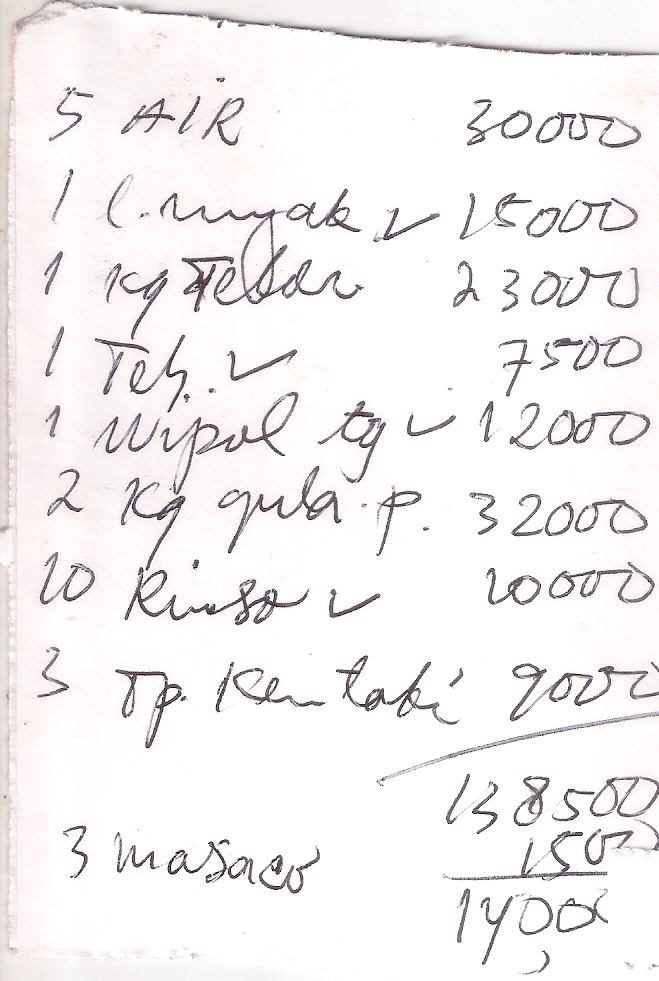 5 AIR 30000
1 l. minyak ✓ 15000
1 kg Telor 23000
1 Teh. ✓ 7500
1 Wipol tg ✓ 12000
2 Kg gula p. 32000
10 Rinso ✓ 10000
3 Tp. Kentaki 9000
138500
3 masaco 1500
14000